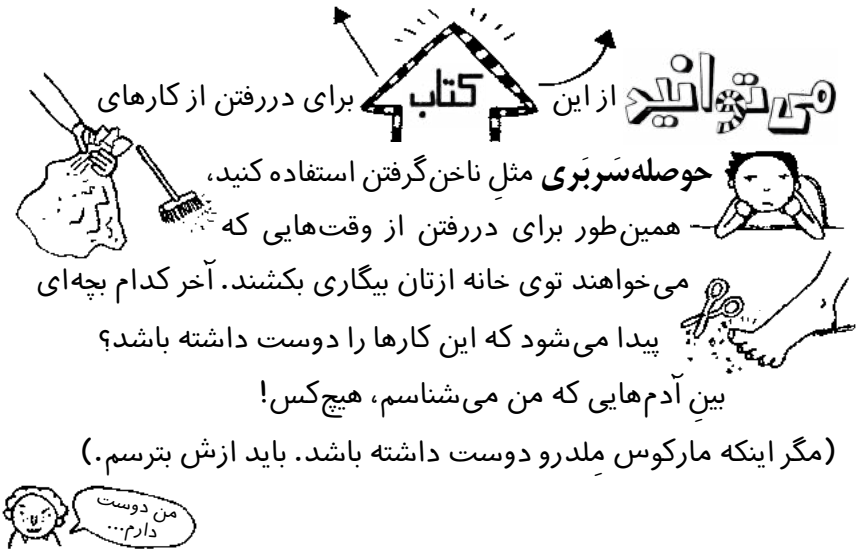 می‌توانید از این کتاب برای دررفتن از کارهای
حوصله‌سَربَری مثلِ ناخن‌گرفتن استفاده کنید،
همین‌طور برای دررفتن از وقت‌هایی که
می‌خواهند توی خانه ازتان بیگاری بکشند. آخر کدام بچه‌ای
پیدا می‌شود که این کارها را دوست داشته باشد؟
بینِ آدم‌هایی که من می‌شناسم، هیچ‌کس!
(مگر اینکه مارکوس مِلدرو دوست داشته باشد. باید ازش بترسم.)
من دوست
دارم...